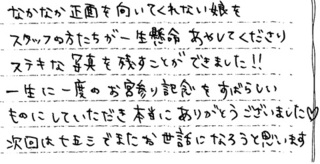 なかなか正面を向いてくれない娘を
スタッフの方たちが一生懸命あやしてくださり
ステキな写真を残すことができました!!
一生に一度のお宮参り記念をすばらしい
ものにしていただき本当にありがとうございました♡
次回は七五三でまたお世話になろうと思います